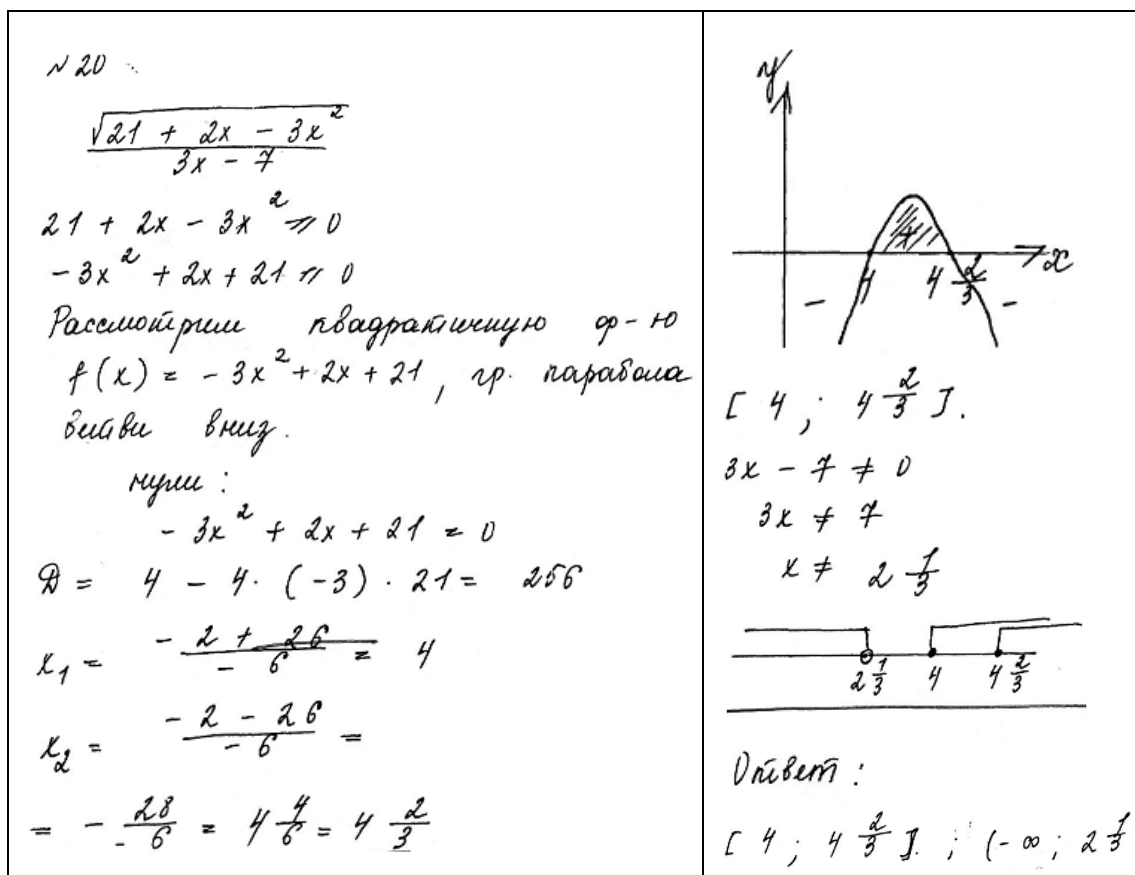 N 20
√21 + 2x - 3x²
3x - 7
21 + 2x - 3x² ≥ 0
-3x² + 2x + 21 ≥ 0
Рассмотрим квадратичную ф-ю
f(x) = -3x² + 2x + 21, гр. парабола
ветви вниз.
нули:
-3x² + 2x + 21 = 0
D = 4 - 4 · (-3) · 21 = 256
x₁ = (-2 + 26)/(-6) = 4
x₂ = (-2 - 26)/(-6) =
= -28/-6 = 4 4/6 = 4 2/3
y
+
x
4
4 2/3
-
-
[ 4 ; 4 2/3 ].
3x - 7 ≠ 0
3x ≠ 7
x ≠ 2 1/3
2 1/3 4 4 2/3
Ответ:
[ 4 ; 4 2/3 ]. ; (-∞ ; 2 1/3